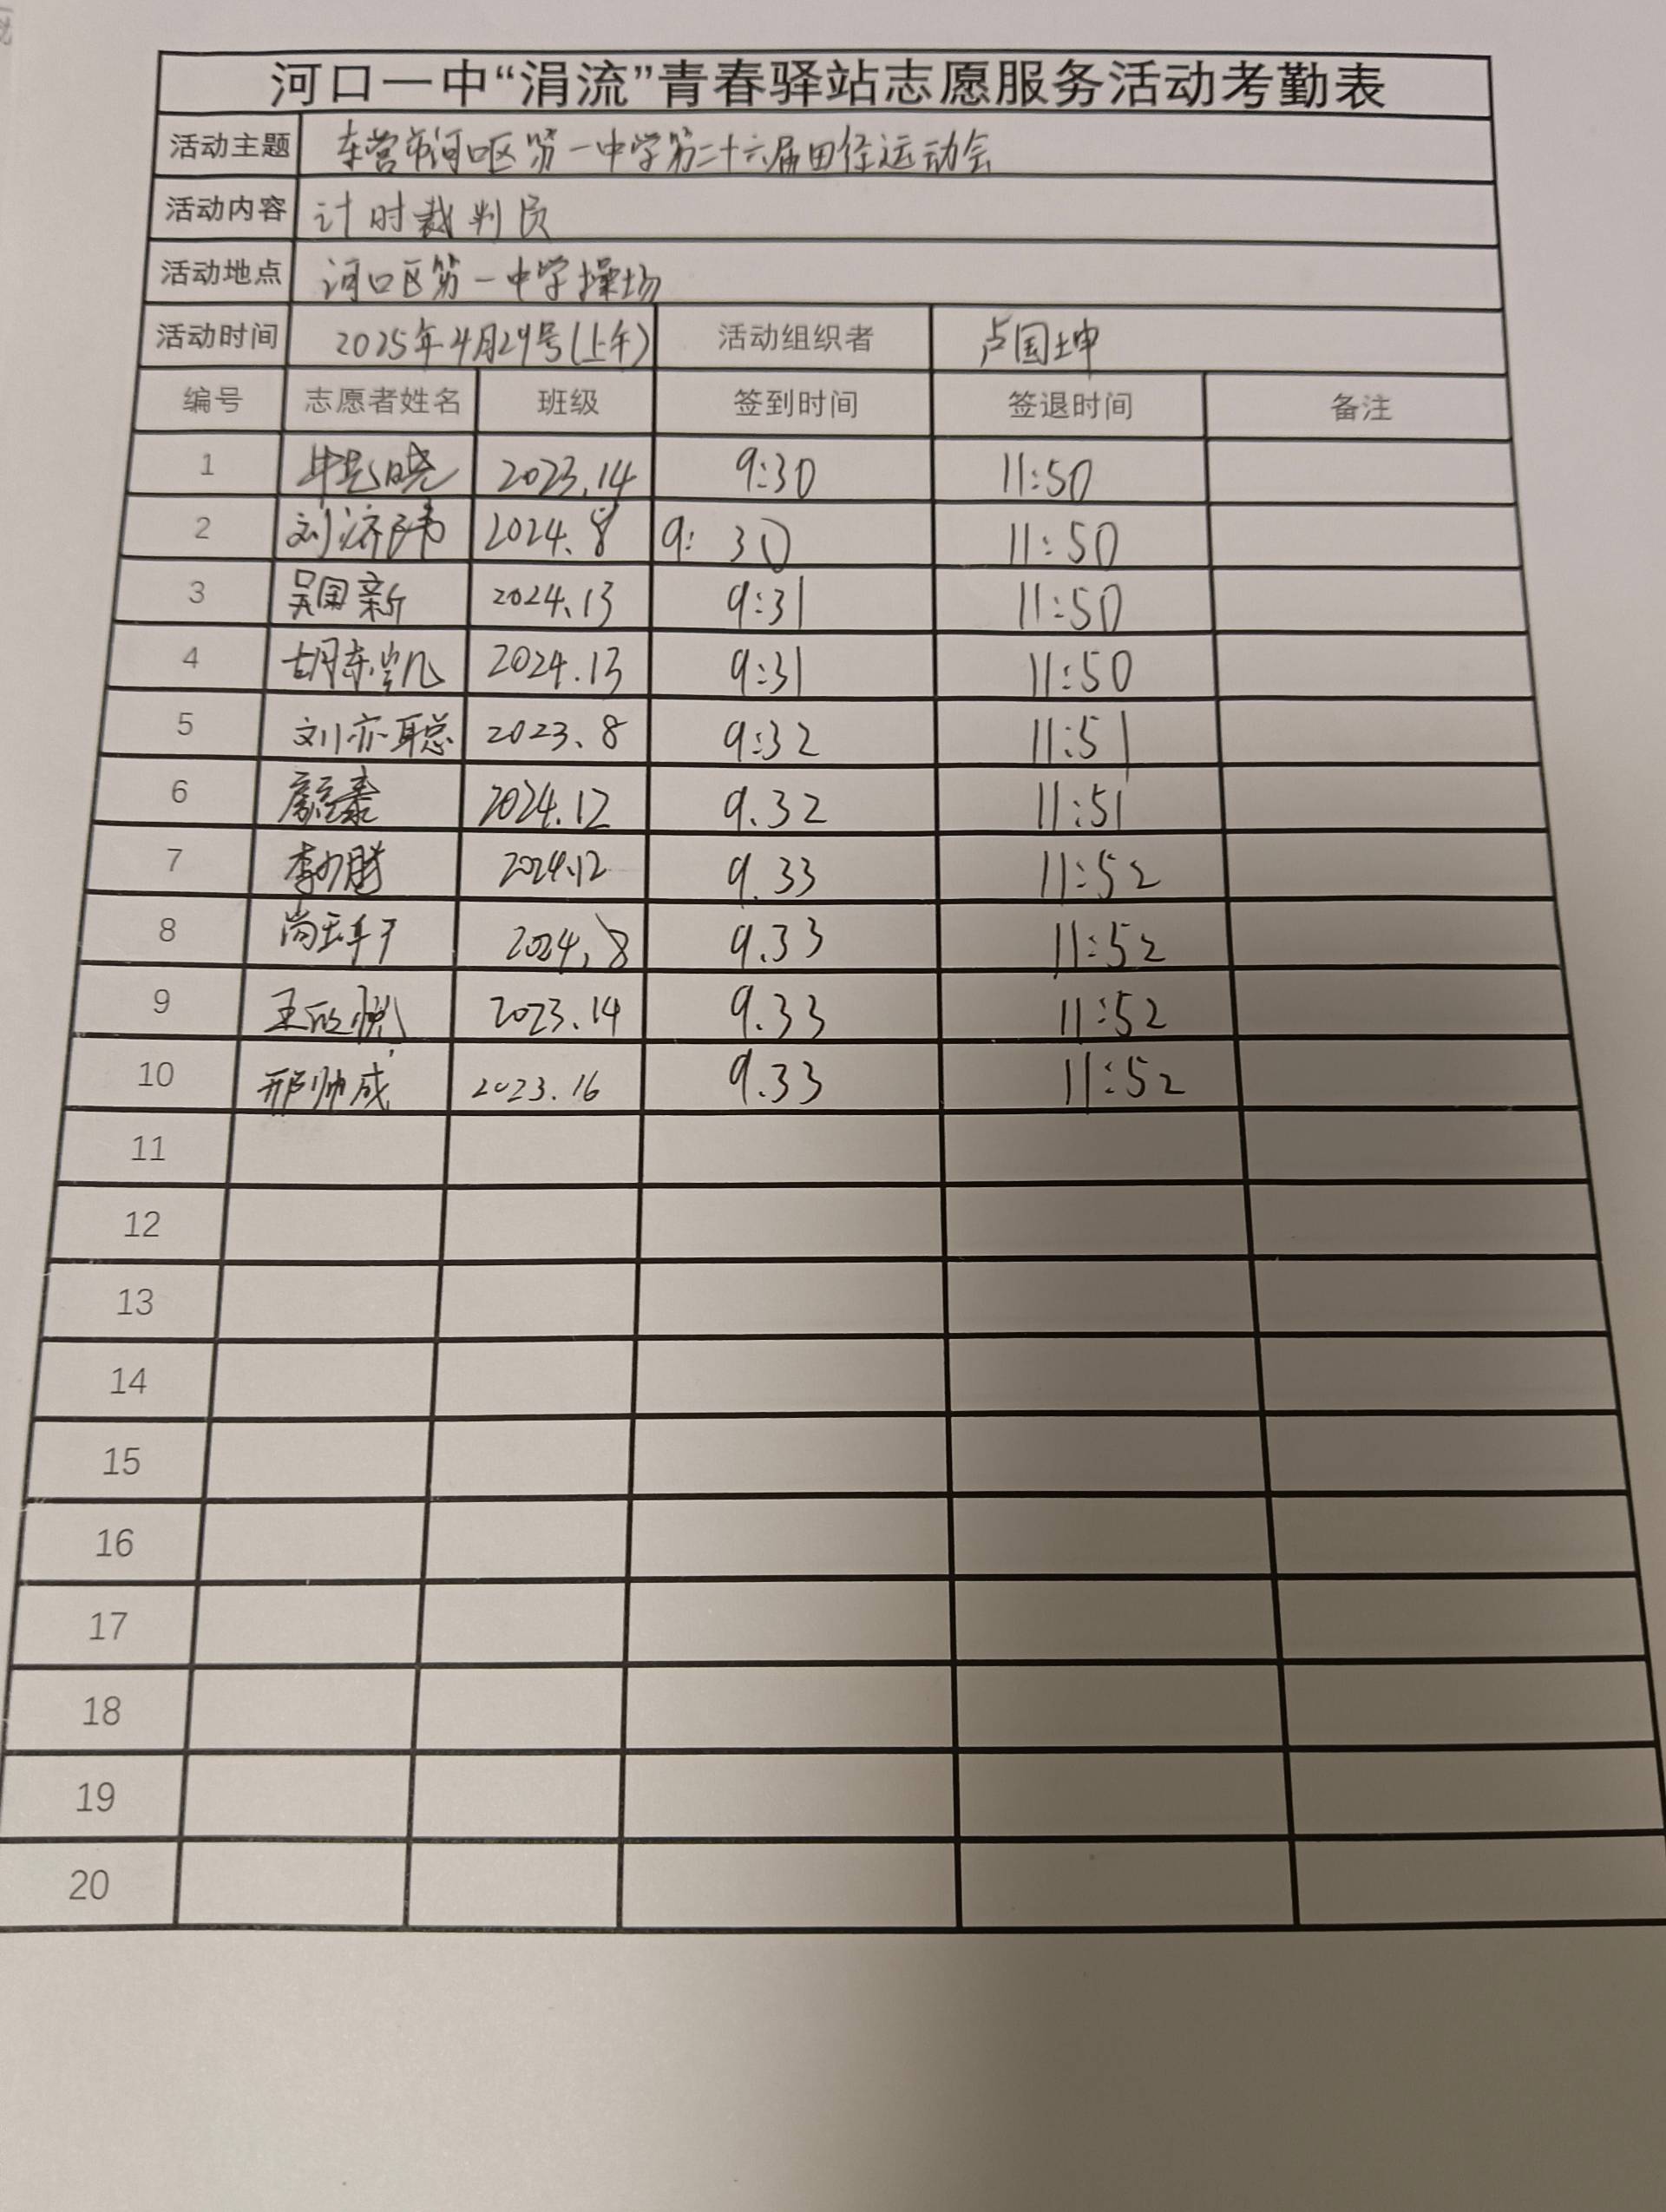 河口一中“涓流”青春驿站志愿服务活动考勤表
活动主题 东营市河口区第一中学第二十六届田径运动会
活动内容 计时裁判员
活动地点 河口区第一中学操场
活动时间 2025年4月29号(上午) 活动组织者 卢国坤
编号 志愿者姓名 班级 签到时间 签退时间 备注
1 2023.14 9:30 11:50
2 刘济玮 2024.8 9:30 11:50
3 吴国新 2024.13 9:31 11:50
4 胡东凯 2024.13 9:31 11:50
5 刘亦聪 2023.8 9:32 11:51
6 2024.12 9.32 11:51
7 2024.12 9.33 11:52
8 2024.8 9.33 11:52
9 王欣悦 2023.14 9.33 11:52
10 邢帅成 2023.16 9.33 11:52
11
12
13
14
15
16
17
18
19
20